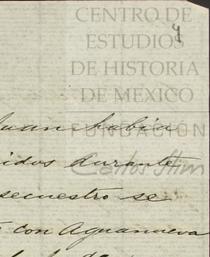 CENTRO DE
ESTUDIOS
DE HISTORIA
DE MÉXICO
FUNDACIÓN
Carlos Slim
Juan había
idos durante
secuestro se
con Aguanueva